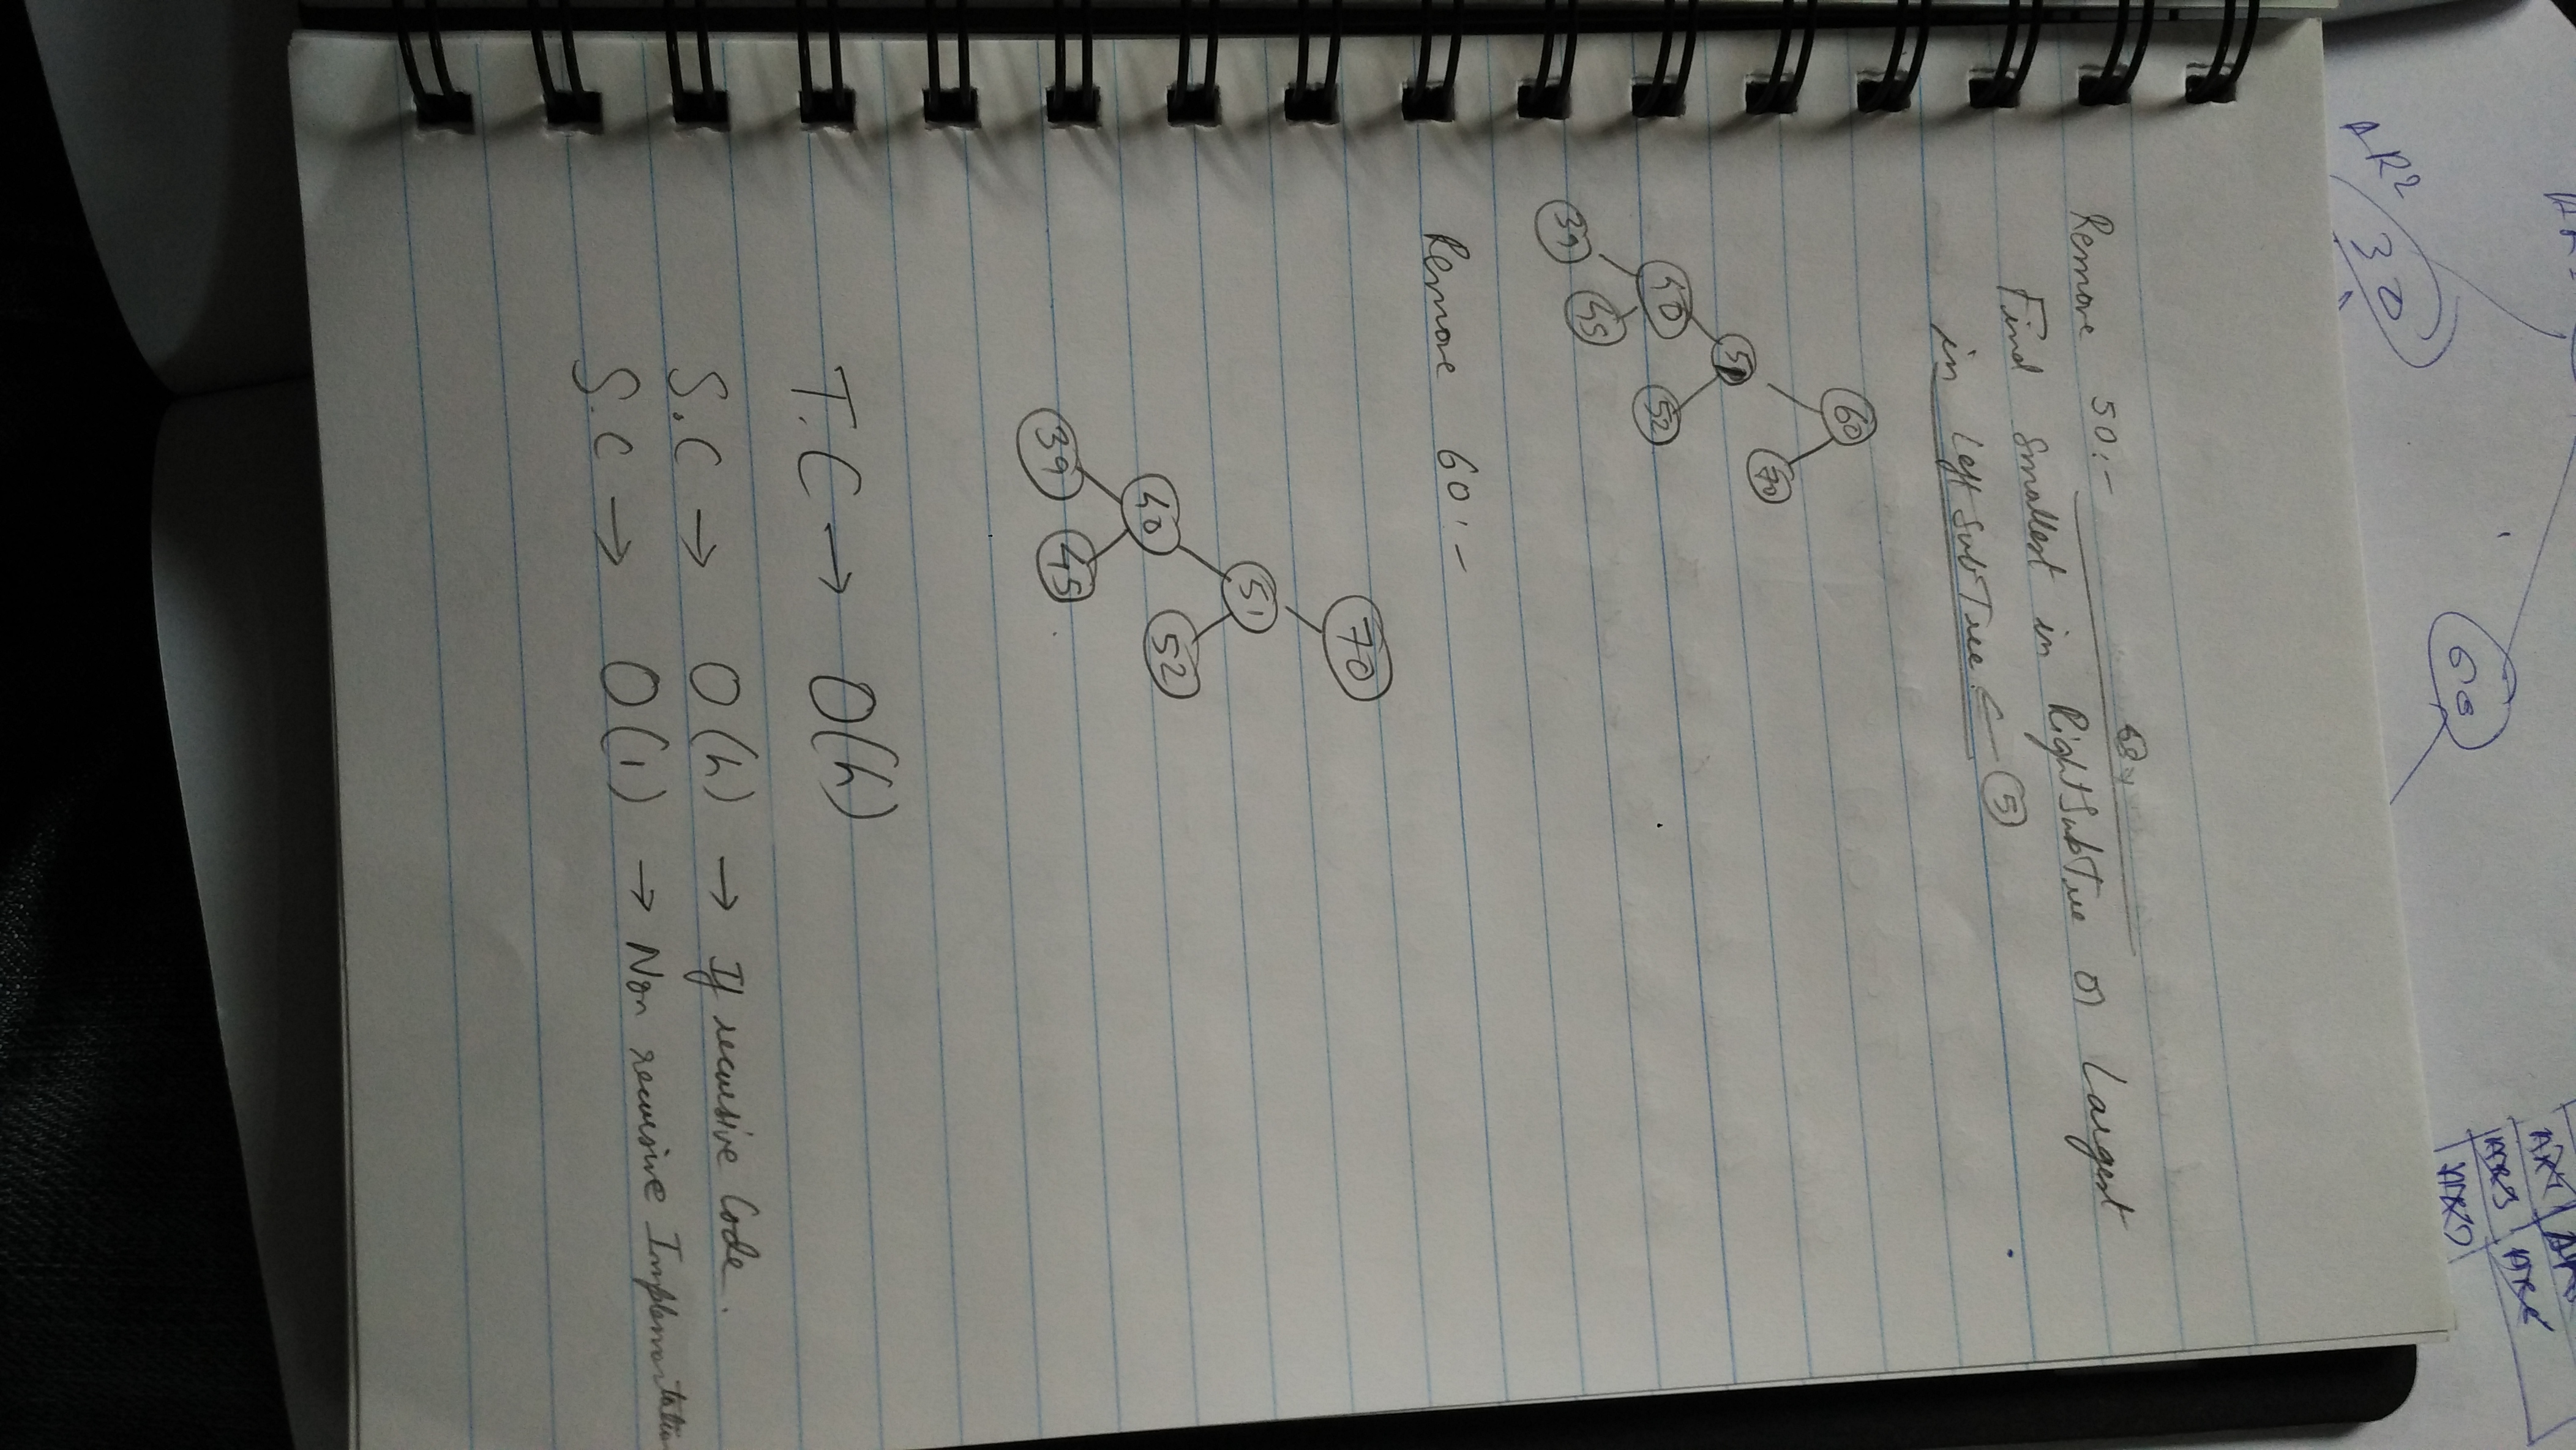 Remove 50:-
Find Smallest in RightSubTree or Largest
in LeftSubTree
60
51
70
40
52
39
45
Remove 60:-
70
51
40
52
39
45
T.C → O(h)
S.C → O(h) → If recursive Code.
S.C → O(1) → Non recursive Implementation
AR2
30
60